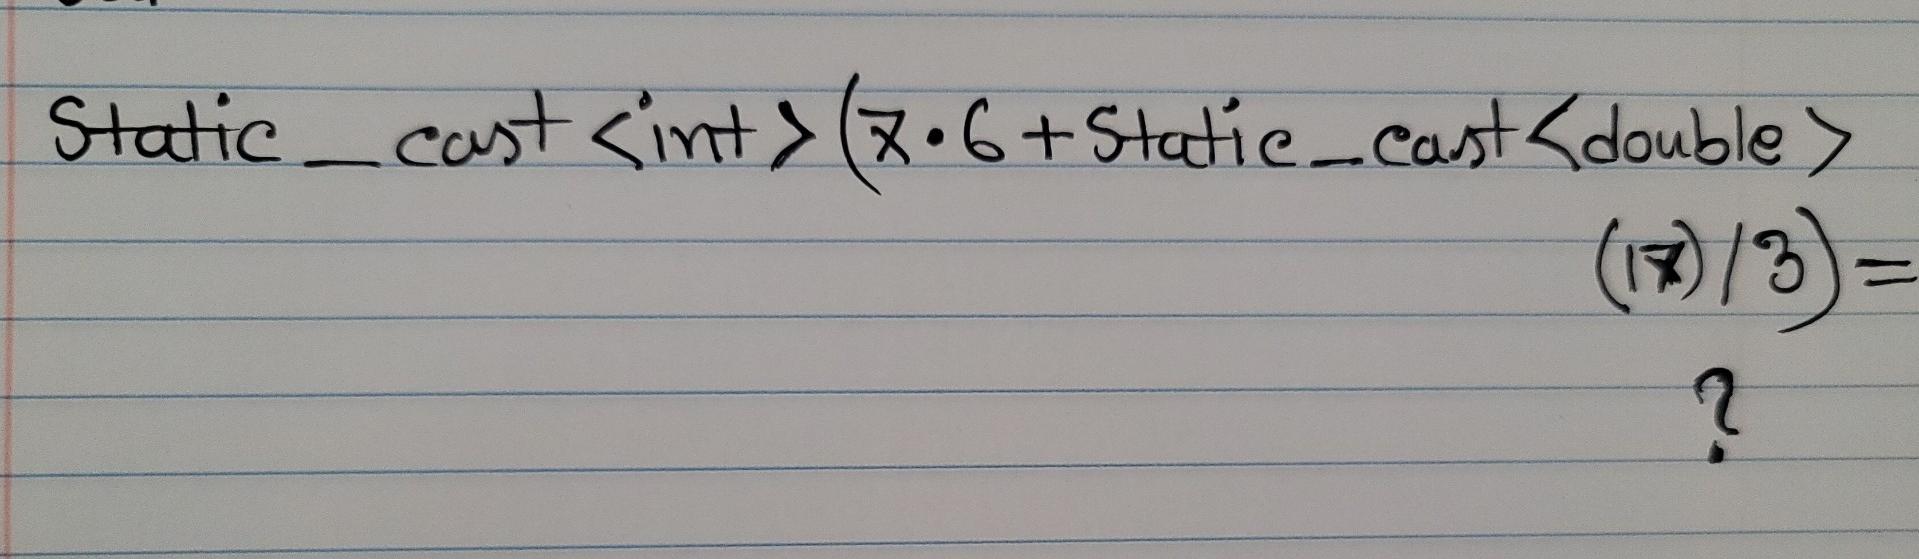 Static_cast <int> (7.6 + Static_cast <double>
(17) / 3) =
?